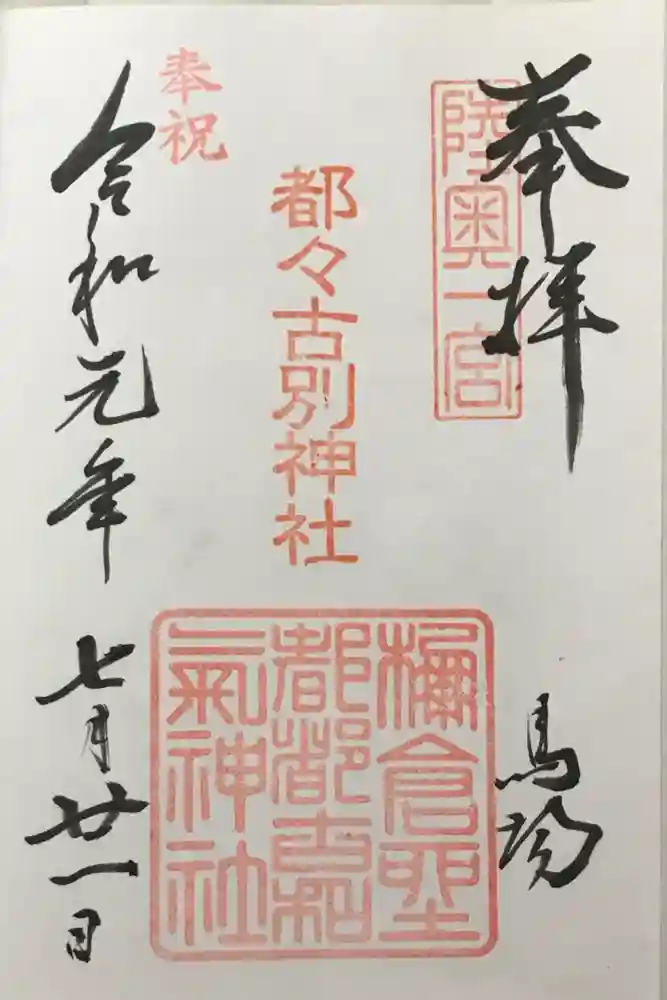 奉拝
陸奥一宮
馬場
都々古別神社
倉
都都古和
氣神社
奉祝
令和元年七月廿一日